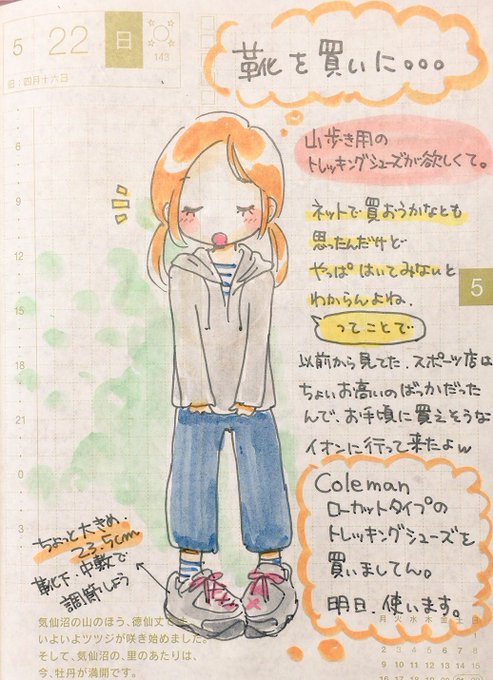 5 22 日
143
旧：四月十六日
靴を買いに。。。
山歩き用の
トレッキングシューズが欲しくて。
ネットで買おうかなとも
思ったんだけど
やっぱはいてみないと
わからんよね．
ってことで
以前から見てた．スポーツ店は
ちょいお高いのばっかだった
んで、お手頃に買えそうな
イオンに行って来たよw
Coleman
ローカットタイプの
トレッキングシューズを
買いましてん。
明日．使います。
ちょっと大きめ．
23.5cm
靴下．中敷で
調節しよう
6
9
12
15
18
21
0
3
5
気仙沼の山のほう、徳仙丈では、
いよいよツツジが咲き始めました。
そして、気仙沼の、里のあたりは、
今、牡丹が満開です。
月 火 水 木 金 土 日
1
2 3 4 5 6 7 8
9 10 11 12 13 14 15
16 17 18 19 20 21 22